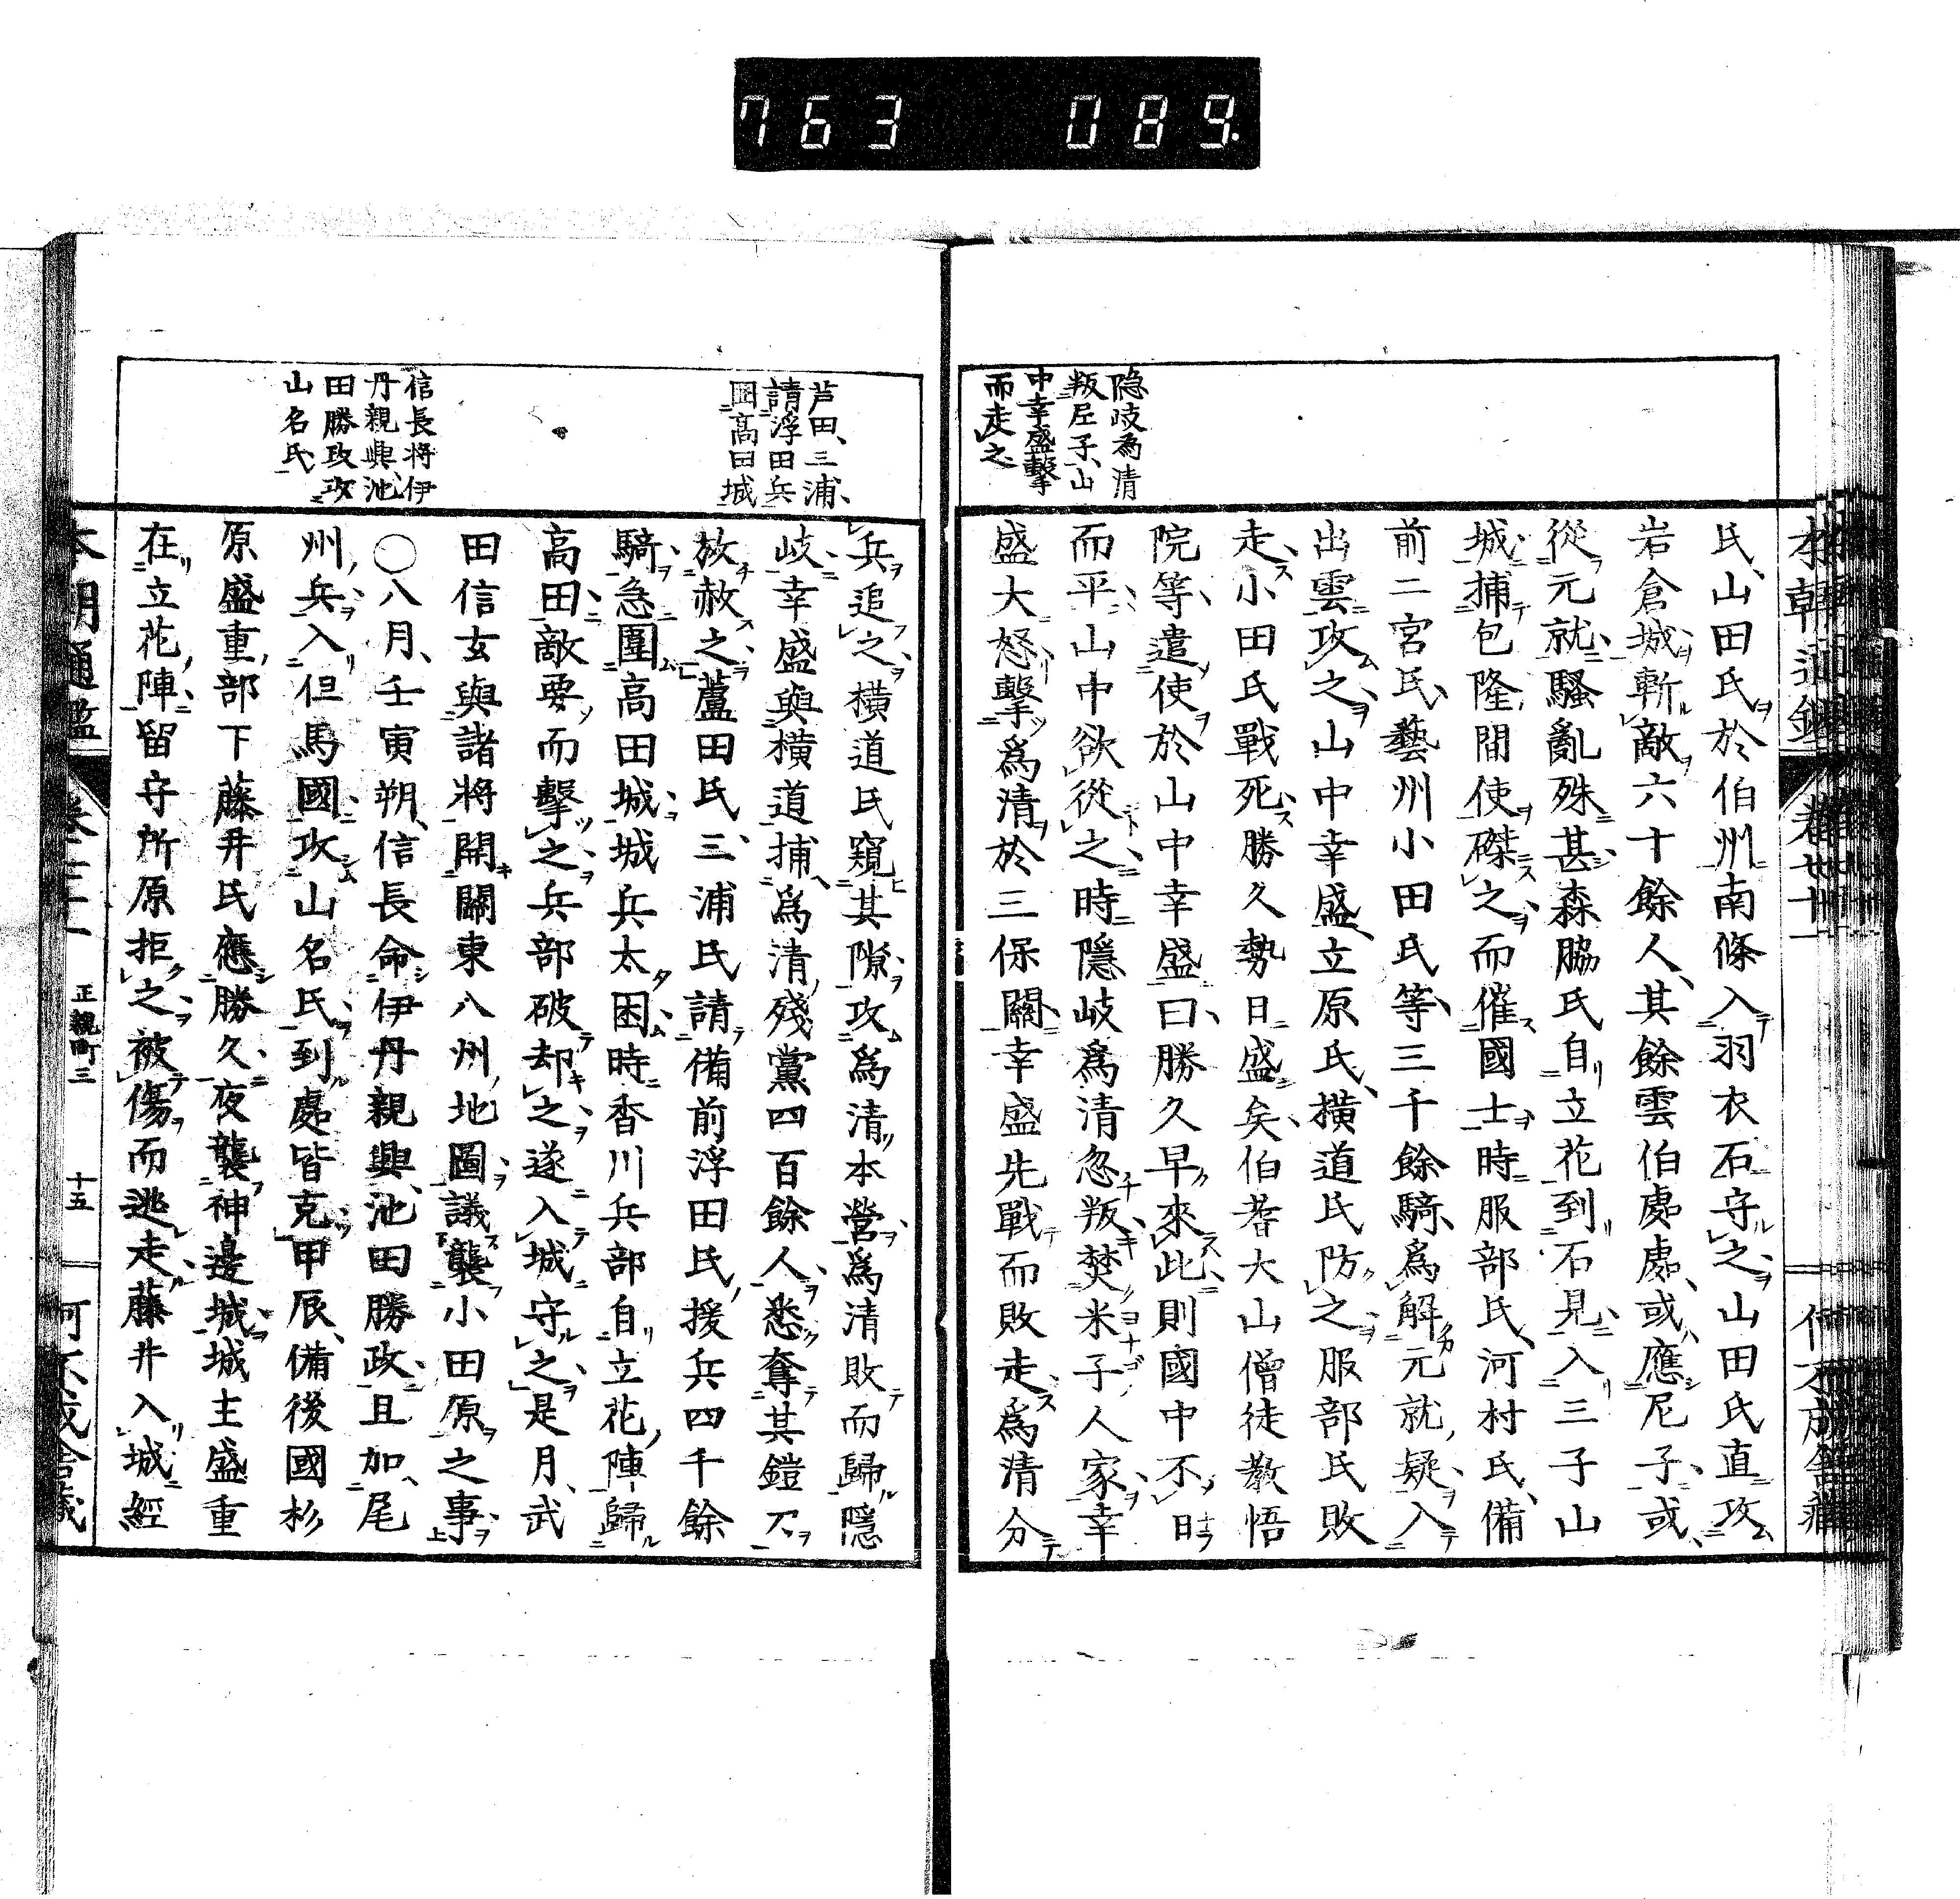 763 089.
隐岐為清
叛尼子、山
中幸盛擊
而走之
氏、山田氏於伯州南條入羽衣石守之山田氏直攻
岩倉城斬敵六十餘人、其餘雲伯處處、或應尼子、或
從元就騷亂殊甚森脇氏自立花到石見入三子山
城捕包隆間使磔之而催國士時服部氏、河村氏、備
前二宮氏、藝州小田氏等、三千餘騎、爲解元就疑入
出雲攻之山中幸盛、立原氏、横道氏防之服部氏敗
走小田氏戰死勝久勢日盛矣伯耆大山僧徒教悟
院等、遣使於山中幸盛曰、勝久早來此則國中不日
而平山中欲從之時隱岐爲清忽叛焚米子人家幸
盛大怒擊爲清於三保關幸盛先戰而敗走爲清分
芦田、三浦、
請浮田兵
圍高田城
信長將伊
丹親興、池
田勝政攻
山名氏
兵追之横道氏窺其隙攻爲清本營爲清敗而歸隱
岐幸盛與横道捕爲清殘黨四百餘人悉奪其鎧刀
放赦之蘆田氏、三浦氏請備前浮田氏援兵四千餘
騎急圍高田城城兵太困時香川兵部自立花陣歸
高田敵要而擊之兵部破却之遂入城守之是月、武
田信玄與諸將開關東八州地圖議襲小田原之事
〇八月、壬寅朔、信長命伊丹親興、池田勝政且加尾
州兵入但馬國攻山名氏到處皆克甲辰、備後國杉
原盛重部下藤井氏應勝久夜襲神邊城城主盛重
在立花陣留守所原拒之被傷而逃走藤井入城經
正親町三
十五